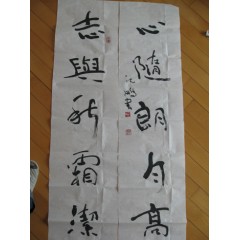 心隨朗月高
志與秋霜潔